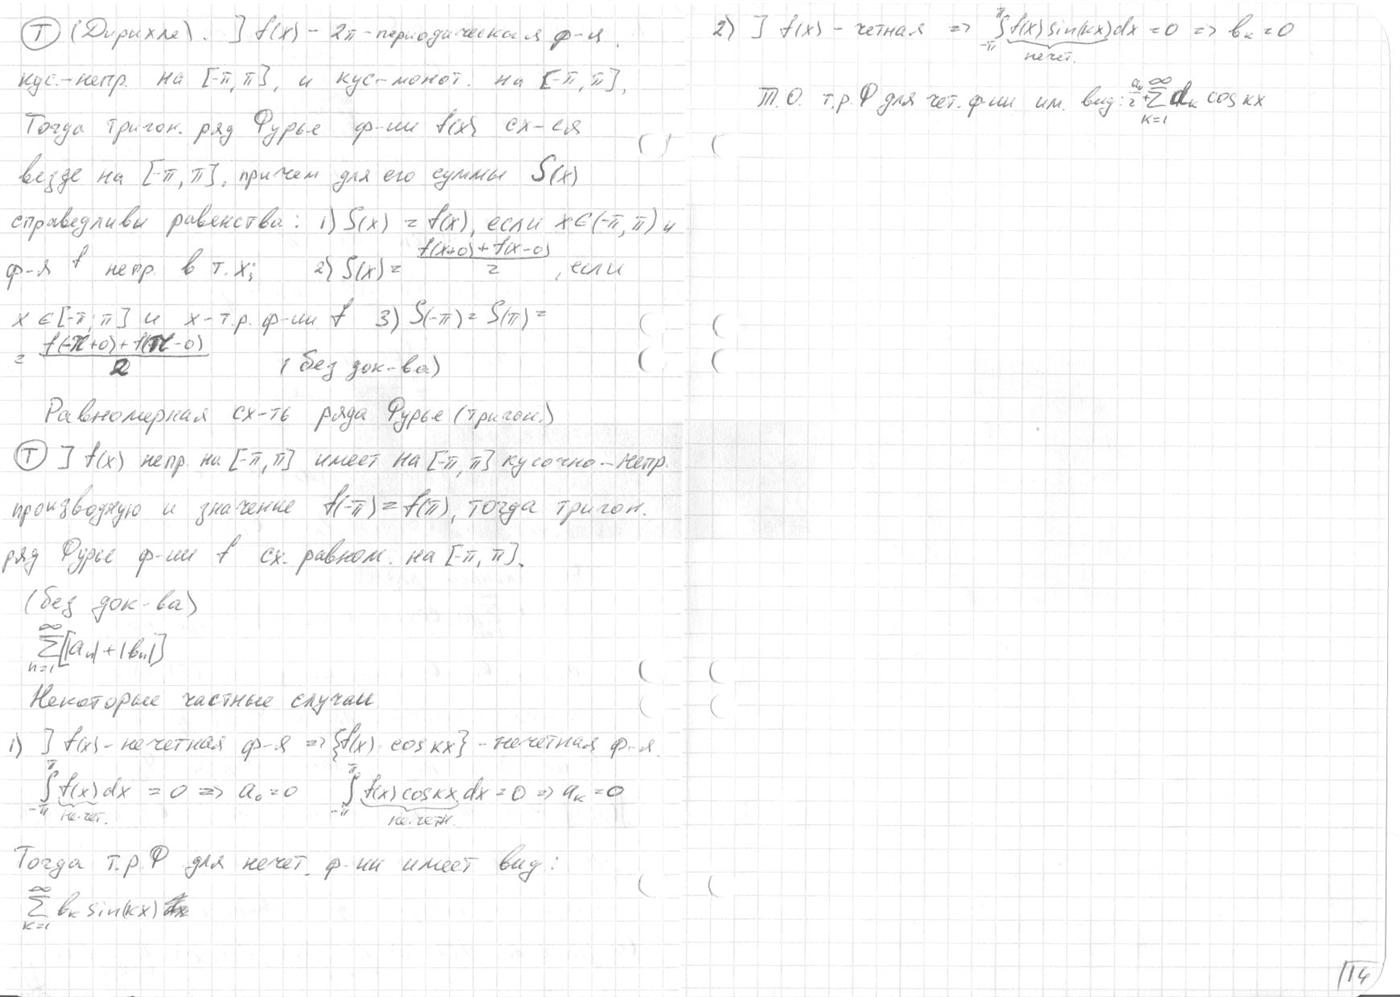 Т (Дирихле). ] f(x) - 2π-периодическая ф-я,
кус.-непр. на [-π, π], и кус-монот. на [-π, π],
Тогда тригон. ряд Фурье ф-ии f(x) сх-ся
везде на [-π, π], причем для его суммы S(x)
справедливы равенства: 1) S(x) = f(x), если x∈(-π, π) и
ф-я f непр. в т. x; 2) S(x) = (f(x+0) + f(x-0))/2, если
x ∈ [-π; π] и x - т.р. ф-ии f 3) S(-π) = S(π) =
= (f(-π+0) + f(π-0))/2 (без док-ва)
Равномерная сх-ть ряда Фурье (тригон.)
Т ] f(x) непр. на [-π, π] имеет на [-π, π] кусочно-непр.
производную и значение f(-π) = f(π), тогда тригон.
ряд Фурье ф-ии f сх. равном. на [-π, π].
(без док-ва)
∑_{n=1}^{∞} [|a_n| + |b_n|]
Некоторые частные случаи
1) ] f(x) - нечетная ф-я => {f(x) cos kx} - нечетная ф-я.
∫_{-π}^{π} f(x) dx = 0 => a_0 = 0 ∫_{-π}^{π} f(x) cos kx dx = 0 => a_k = 0
нечет. нечетн.
Тогда т.р.Ф для нечет. ф-ии имеет вид:
∑_{k=1}^{∞} b_k sin(kx)
2) ] f(x) - четная => ∫_{-π}^{π} f(x) sin(kx) dx = 0 => b_k = 0
нечет.
Т.О. т.р.Ф для чет. ф-ии им. вид: a_0/2 + ∑_{k=1}^{∞} a_k cos kx
14